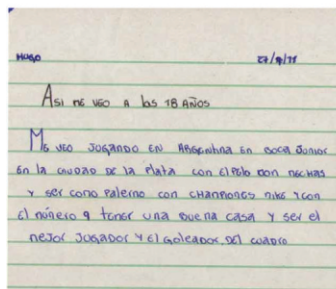 HUGO
Asi me veo a los 18 AÑOS
Me veo JUGANDO EN ARGENTINA EN BOCA JUNIOR
En la CIUDAD DE LA Plata con El Pelo con mechas
y ser como Palermo con CHAMPIONES NIKE Y con
El número 9 tener una buena casa y ser el
mejor JUGADOR Y El goleador DEl cuadro